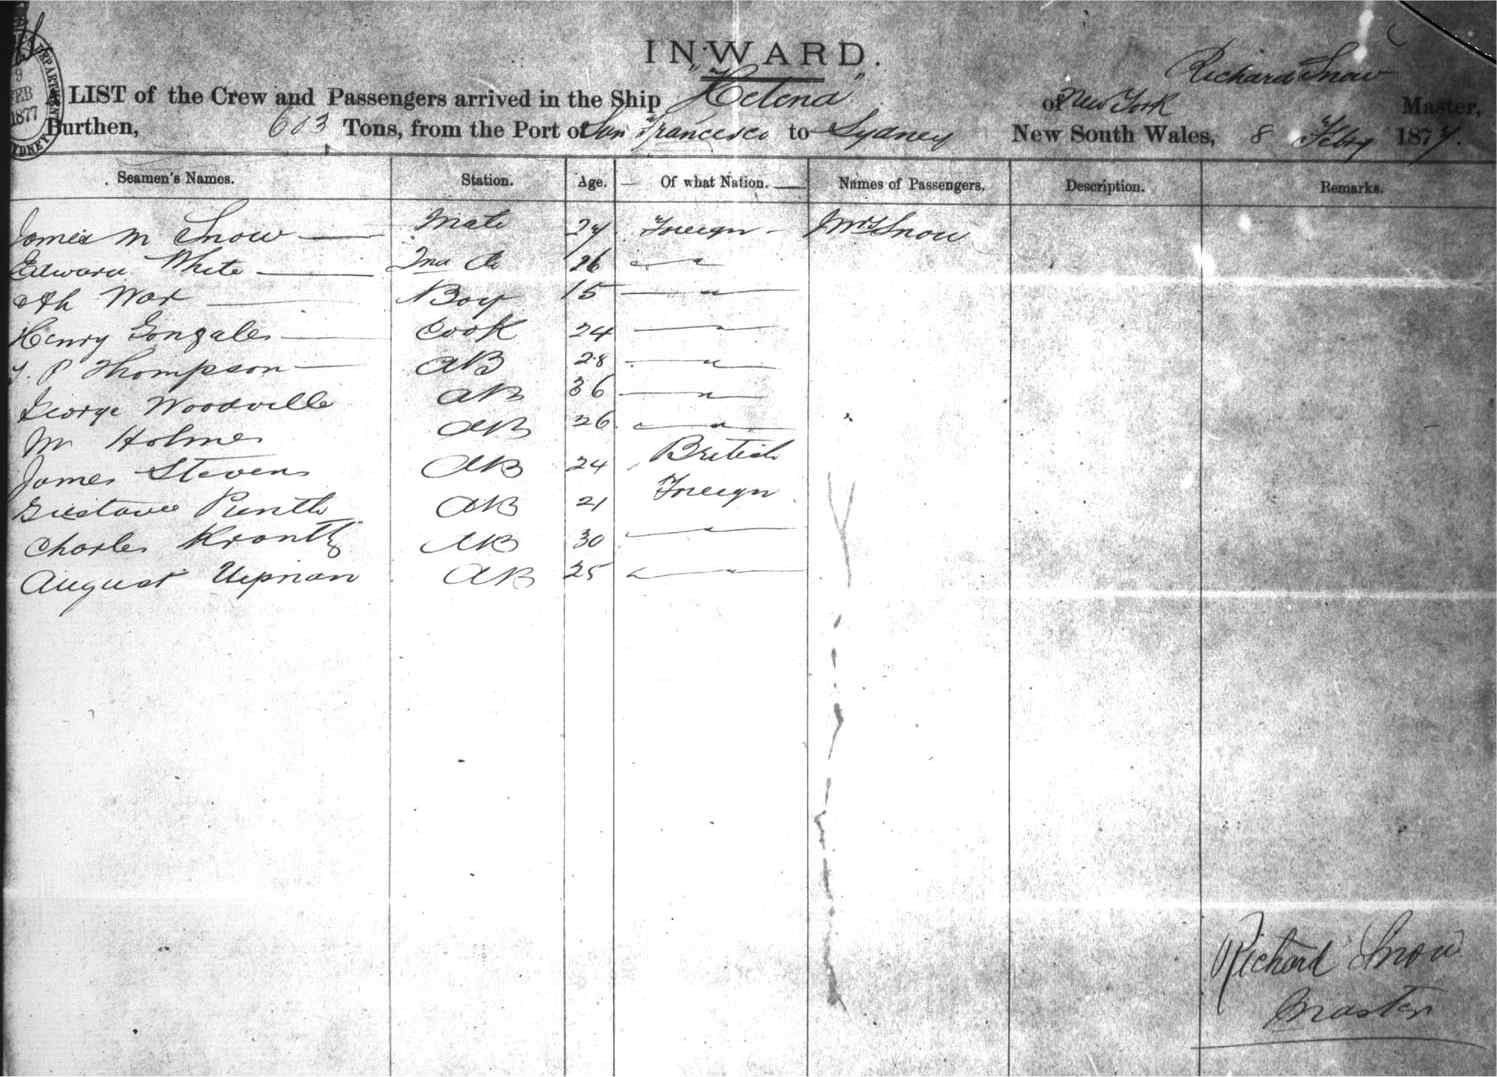 INWARD.
LIST of the Crew and Passengers arrived in the Ship "Helena" of New York Richard Snow Master,
Burthen, 603 Tons, from the Port of San Francisco to Sydney New South Wales, 8 Feby 1877.
Seamen's Names. Station. Age. Of what Nation. Names of Passengers. Description. Remarks.
James M Snow Mate 24 Foreign Mrs Snow
Edward White 2nd do 26 " "
Ah Boy 15 "
Henry Gonzales Cook 24 "
P Thompson AB 28 "
George Woodville AB 36 "
M Holmes AB 26 "
James Stevens AB 24 British
Gustave AB 21 Foreign
Charles Krantz AB 30 "
August AB 25 "
Richard Snow
Master
9
FEB
1877